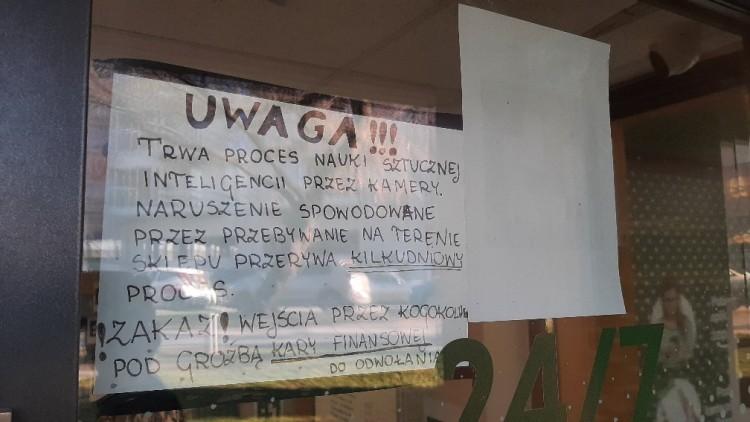 UWAGA!!!
TRWA PROCES NAUKI SZTUCZNEJ
INTELIGENCII PRZEZ KAMERY.
NARUSZENIE SPOWODOWANE
PRZEZ PRZEBYWANIE NA TERENIE
SKLEPU PRZERYWA KILKUDNIOWY
PROCES.
!ZAKAZ! WEJŚCIA PRZEZ KOGOKOLW
POD GROŹBĄ KARY FINANSOWEJ
DO ODWOŁANIA
24/7